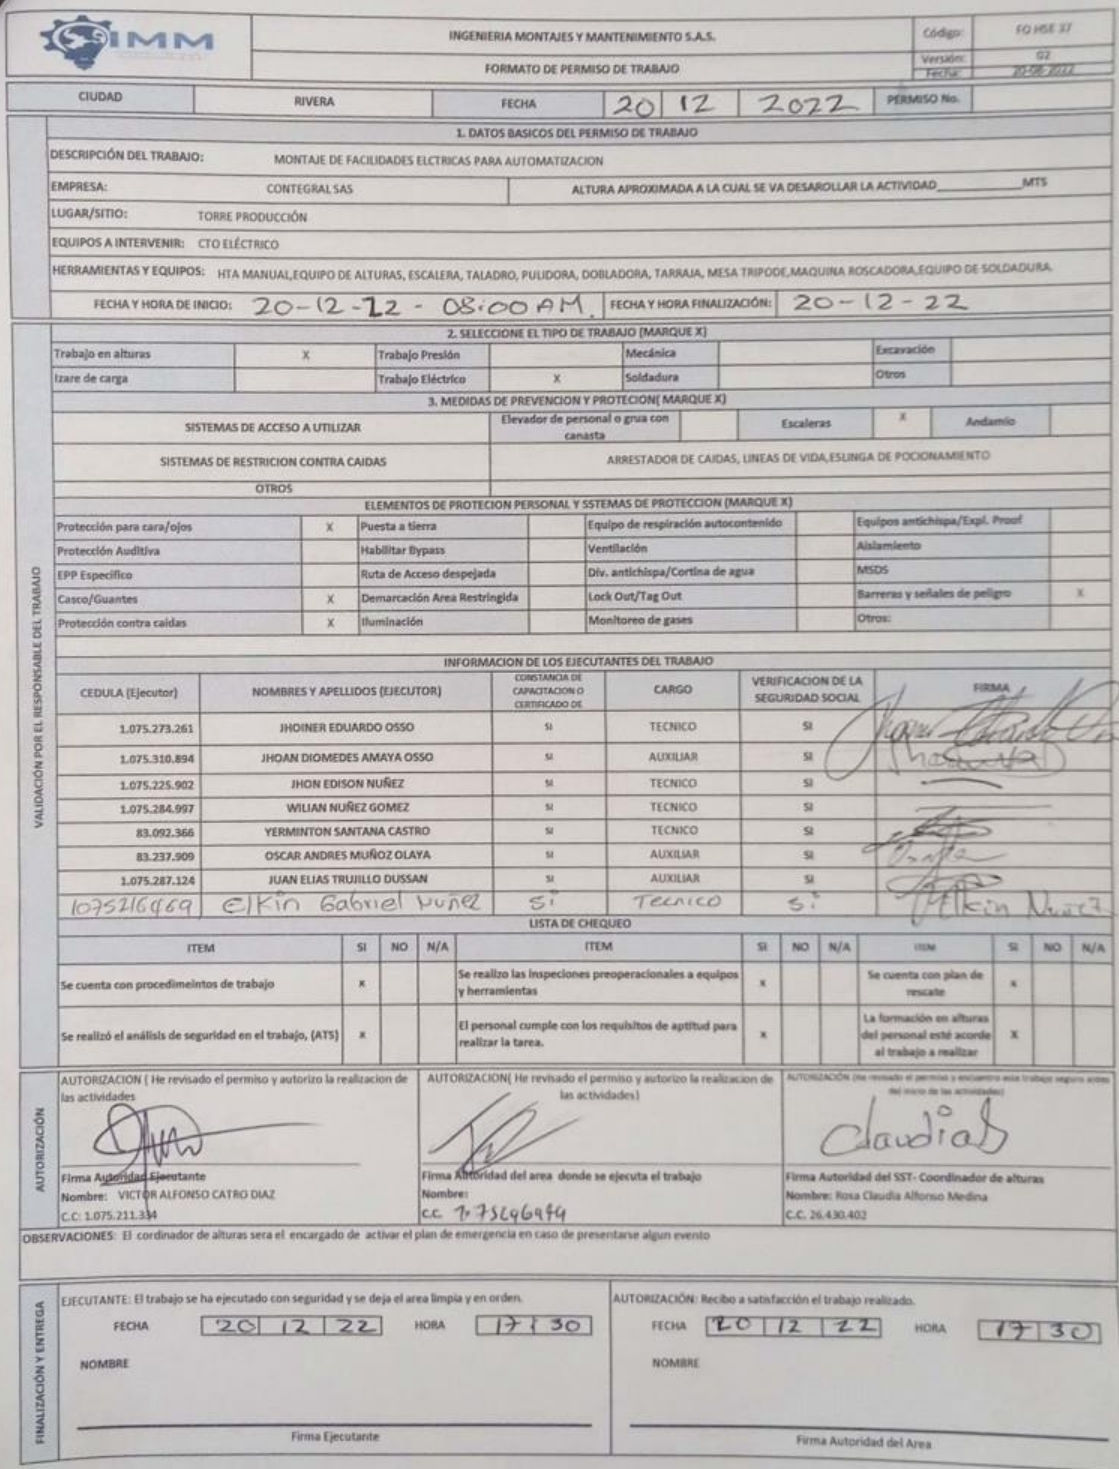 SIMM
INGENIERIA MONTAJES Y MANTENIMIENTO S.A.S.
Código: FO HSE 37
FORMATO DE PERMISO DE TRABAJO
Versión: 02
Fecha: 20-06-2022
CIUDAD RIVERA FECHA 20 12 2022 PERMISO No.
1. DATOS BASICOS DEL PERMISO DE TRABAJO
DESCRIPCIÓN DEL TRABAJO: MONTAJE DE FACILIDADES ELCTRICAS PARA AUTOMATIZACION
EMPRESA: CONTEGRAL SAS ALTURA APROXIMADA A LA CUAL SE VA DESAROLLAR LA ACTIVIDAD_________MTS
LUGAR/SITIO: TORRE PRODUCCIÓN
EQUIPOS A INTERVENIR: CTO ELÉCTRICO
HERRAMIENTAS Y EQUIPOS: HTA MANUAL,EQUIPO DE ALTURAS, ESCALERA, TALADRO, PULIDORA, DOBLADORA, TARRAJA, MESA TRIPODE,MAQUINA ROSCADORA,EQUIPO DE SOLDADURA.
FECHA Y HORA DE INICIO: 20-12-22 - 08:00 AM. FECHA Y HORA FINALIZACIÓN: 20-12-22
2. SELECCIONE EL TIPO DE TRABAJO (MARQUE X)
Trabajo en alturas X Trabajo Presión Mecánica Excavación
Izare de carga Trabajo Eléctrico X Soldadura Otros
3. MEDIDAS DE PREVENCION Y PROTECION( MARQUE X)
SISTEMAS DE ACCESO A UTILIZAR Elevador de personal o grua con canasta Escaleras X Andamio
SISTEMAS DE RESTRICION CONTRA CAIDAS ARRESTADOR DE CAIDAS, LINEAS DE VIDA,ESLINGA DE POCIONAMIENTO
OTROS
ELEMENTOS DE PROTECION PERSONAL Y SSTEMAS DE PROTECCION (MARQUE X)
Protección para cara/ojos X Puesta a tierra Equipo de respiración autocontenido Equipos antichispa/Expl. Proof
Protección Auditiva Habilitar Bypass Ventilación Aislamiento
EPP Especifico Ruta de Acceso despejada Div. antichispa/Cortina de agua MSDS
Casco/Guantes X Demarcación Area Restringida Lock Out/Tag Out Barreras y señales de peligro X
Protección contra caidas X Iluminación Monitoreo de gases Otros:
VALIDACIÓN POR EL RESPONSABLE DEL TRABAJO
INFORMACION DE LOS EJECUTANTES DEL TRABAJO
CEDULA (Ejecutor) NOMBRES Y APELLIDOS (EJECUTOR) CONSTANCIA DE CAPACITACION O CERTIFICADO DE CARGO VERIFICACION DE LA SEGURIDAD SOCIAL FIRMA
1.075.273.261 JHOINER EDUARDO OSSO SI TECNICO SI
1.075.310.894 JHOAN DIOMEDES AMAYA OSSO SI AUXILIAR SI
1.075.225.902 JHON EDISON NUÑEZ SI TECNICO SI
1.075.284.997 WILIAN NUÑEZ GOMEZ SI TECNICO SI
83.092.366 YERMINTON SANTANA CASTRO SI TECNICO SI
83.237.909 OSCAR ANDRES MUÑOZ OLAYA SI AUXILIAR SI
1.075.287.124 JUAN ELIAS TRUJILLO DUSSAN SI AUXILIAR SI
1075216469 Elkin Gabriel Nuñez Si Tecnico Si Elkin Nuñez
LISTA DE CHEQUEO
ITEM SI NO N/A ITEM SI NO N/A ITEM SI NO N/A
Se cuenta con procedimeintos de trabajo x Se realizo las inspeciones preoperacionales a equipos y herramientas x Se cuenta con plan de rescate x
Se realizó el análisis de seguridad en el trabajo, (ATS) x El personal cumple con los requisitos de aptitud para realizar la tarea. x La formación en alturas del personal esté acorde al trabajo a realizar X
AUTORIZACIÓN
AUTORIZACION ( He revisado el permiso y autorizo la realizacion de las actividades
AUTORIZACION( He revisado el permiso y autorizo la realizacion de las actividades)
AUTORIZACIÓN (He revisado el permiso y encuentro este trabajo seguro antes del inicio de las actividades)
ClaudiaA
Firma Autoridad Ejecutante
Nombre: VICTOR ALFONSO CATRO DIAZ
C.C: 1.075.211.334
Firma Autoridad del area donde se ejecuta el trabajo
Nombre:
c.c.
Firma Autoridad del SST- Coordinador de alturas
Nombre: Rosa Claudia Alfonso Medina
C.C. 26.430.402
OBSERVACIONES: El cordinador de alturas sera el encargado de activar el plan de emergencia en caso de presentarse algun evento
FINALIZACIÓN Y ENTREGA
EJECUTANTE: El trabajo se ha ejecutado con seguridad y se deja el area limpia y en orden.
FECHA 20 12 22 HORA 17 30
NOMBRE
Firma Ejecutante
AUTORIZACIÓN: Recibo a satisfacción el trabajo realizado.
FECHA 20 12 22 HORA 17 30
NOMBRE
Firma Autoridad del Area